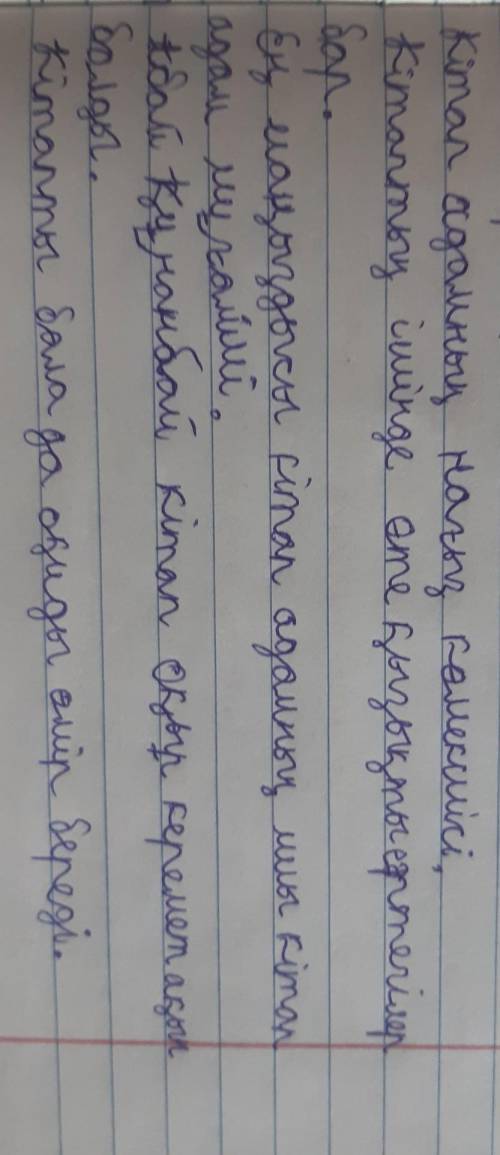 Кітап адамның нағыз көмекшісі,
Кітаптың ішінде өте қызықты ертегілер
бар.
Ең маңыздысы кітап адамның шы кітап
адам мұғалімі.
Абай Құнанбай кітап оқып керемет ақын
болды.
Кітапты бала да оқиды өмір береді.